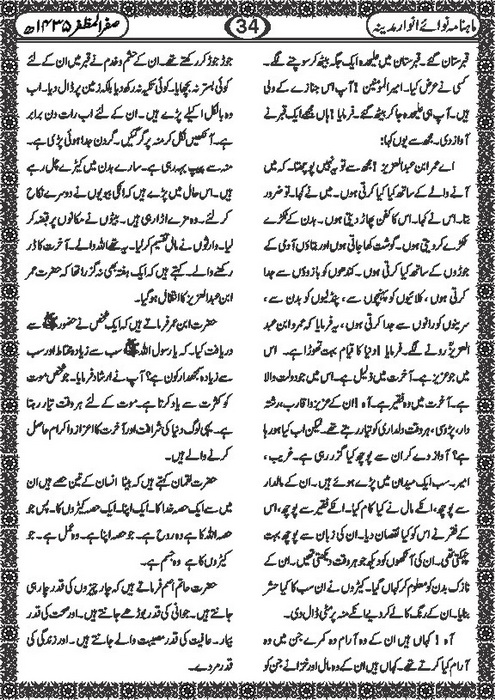 ماہنامہ نوائے انوار مدینہ
34
صفر المظفر ۱۴۳۵ھ
قبرستان گئے۔ قبرستان میں علیحدہ ایک جگہ بیٹھ کر سوچنے لگے۔
کسی نے عرض کیا۔ امیر المؤمنین! آپ اس جنازے کے ولی
ہیں۔ آپ ہی علیحدہ جا کر بیٹھ گئے۔ فرمایا! ہاں مجھے ایک قبر نے
آواز دی۔ مجھ سے یوں کہا:
اے عمر ابن عبد العزیز! مجھ سے تو یہ نہیں پوچھتا۔ کہ میں
آنے والے کے ساتھ کیا کیا کرتی ہوں۔ میں نے کہا۔ تو ضرور
بتا۔ اس نے کہا۔ اس کا کفن پھاڑ دیتی ہوں۔ بدن کے ٹکڑے
ٹکڑے کر دیتی ہوں۔ گوشت کھا جاتی ہوں اور بتاؤں آدمی کے
جوڑوں کے ساتھ کیا کرتی ہوں۔ کندھوں کو بازوؤں سے جدا
کرتی ہوں، کلائیوں کو پہنچوں سے، پنڈلیوں کو بدن سے،
سرینوں کو رانوں سے جدا کرتی ہوں، یہ فرمایا کہ عمرو ابن عبد
العزیز رونے لگے۔ فرمایا! دنیا کا قیام بہت تھوڑا ہے۔ اس
میں جو عزیز ہے۔ آخرت میں ذلیل ہے۔ اس میں جو دولت والا
ہے۔ آخرت میں وہ فقیر ہے۔ آہ! ان کے عزیز و اقارب، رشتہ
دار، پڑوسی، ہر وقت دلداری کو تیار رہتے تھے۔ لیکن اب کیا ہو رہا
ہے؟ آواز دے کر ان سے پوچھ کیا گزر رہی ہے۔ غریب،
امیر۔ سب ایک میدان میں پڑے ہوئے ہیں۔ ان کے مالدار
سے پوچھ، انکے مال نے کیا کام کیا۔ انکے فقیر سے پوچھ، اس
کے فقر نے اس کو کیا نقصان دیا۔ ان کی زبان سے پوچھ بہت
چہکتی تھی۔ ان کی آنکھوں کو دیکھ جو ہر وقت دیکھتی تھیں۔ ان کے
نازک بدن کو معلوم کر کہاں گیا۔ کیڑوں نے ان سب کا کیا حشر
بنایا۔ ان کے رنگ کالے کر دیے انکے منہ پر مٹی ڈال دی۔
آہ! کہاں ہیں ان کے وہ آرام وہ کمرے جن میں وہ
آرام کیا کرتے تھے۔ کہاں ہیں ان کے وہ مال اور خزانے جن کو
جوڑ جوڑ کر رکھتے تھے۔ ان کے حشم و خدم نے قبر میں ان کے لئے
کوئی بستر نہ بچھایا۔ کوئی تکیہ نہ رکھ دیا بلکہ زمین پر ڈال دیا۔ اب
وہ بالکل اکیلے پڑے ہیں۔ ان کے لئے اب رات دن برابر
ہے۔ آنکھیں نکل کر منہ پر گر گئیں۔ گردن جدا ہوئی پڑی ہے۔
منہ سے پیپ بہہ رہی ہے۔ سارے بدن میں کیڑے چل رہے
ہیں۔ اس حال میں پڑے ہیں کہ انکی بیویوں نے دوسرے نکاح
کر لئے۔ وہ مزے اڑا رہی ہیں۔ بیٹوں نے مکانوں پر قبضہ کر
لیا۔ وارثوں نے مال تقسیم کر لیا۔ یہ تھے اللہ والے۔ آخرت کا ڈر
رکھنے والے۔ کہتے ہیں کہ ایک ہفتہ بھی نہ گزرا تھا کہ حضرت عمر
ابن عبد العزیز کا انتقال ہو گیا۔
حضرت ابن عمر فرماتے ہیں کہ ایک شخص نے حضور ﷺ سے
دریافت کیا۔ کہ یا رسول اللہ ﷺ سب سے زیادہ محتاط اور سب
سے زیادہ سمجھدار کون ہے؟ آپ نے ارشاد فرمایا۔ جو شخص موت
کو کثرت سے یاد کرتا ہے۔ موت کے لئے ہر وقت تیار رہتا
ہے۔ یہی لوگ دنیا کی شرافت اور آخرت کا اعزاز و اکرام حاصل
کرنے والے ہیں۔
حضرت لقمان کہتے ہیں کہ بیٹا انسان کے تین حصے ہیں ان
میں سے ایک حصہ خدا کا۔ ایک اپنا۔ ایک حصہ کیڑوں کا۔ پس جو
حصہ اللہ کا ہے وہ روح ہے۔ جو حصہ اپنا ہے۔ وہ عمل ہے۔ جو
کیڑوں کا ہے وہ جسم ہے۔
حضرت حاتم اصم فرماتے ہیں کہ چار چیزوں کی قدر چار ہی
جانتے ہیں۔ جوانی کی قدر بوڑھے جانتے ہیں۔ اور صحت کی قدر
بیمار۔ عافیت کی قدر مصیبت والے جانتے ہیں۔ اور زندگی کی
قدر مردے۔